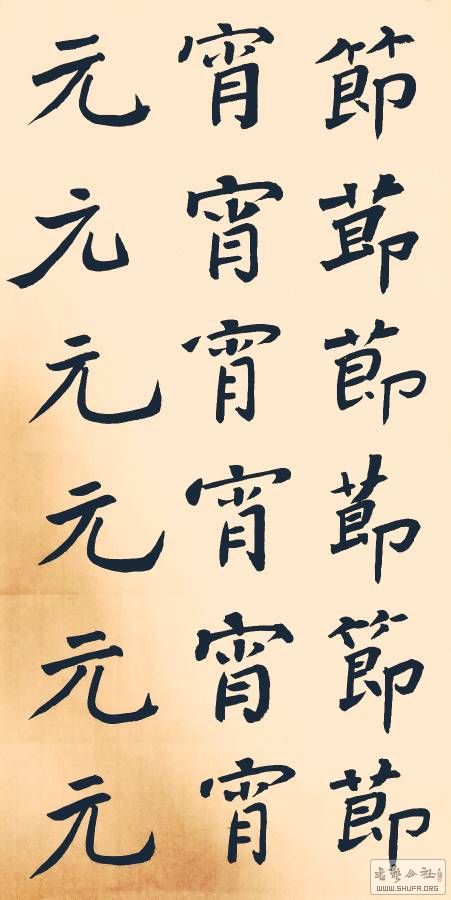 元宵節
元宵節
元宵節
元宵節
元宵節
元宵節
書藝公社
WWW.SHUFA.ORG